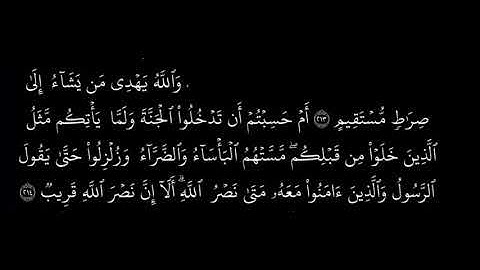 وَٱللَّهُ يَهْدِى مَن يَشَآءُ إِلَىٰ
صِرَٰطٍ مُّسْتَقِيمٍ ٢١٣ أَمْ حَسِبْتُمْ أَن تَدْخُلُوا۟ ٱلْجَنَّةَ وَلَمَّا يَأْتِكُم مَّثَلُ
ٱلَّذِينَ خَلَوْا۟ مِن قَبْلِكُم ۖ مَّسَّتْهُمُ ٱلْبَأْسَآءُ وَٱلضَّرَّآءُ وَزُلْزِلُوا۟ حَتَّىٰ يَقُولَ
ٱلرَّسُولُ وَٱلَّذِينَ ءَامَنُوا۟ مَعَهُۥ مَتَىٰ نَصْرُ ٱللَّهِ ۗ أَلَآ إِنَّ نَصْرَ ٱللَّهِ قَرِيبٌ ٢١٤